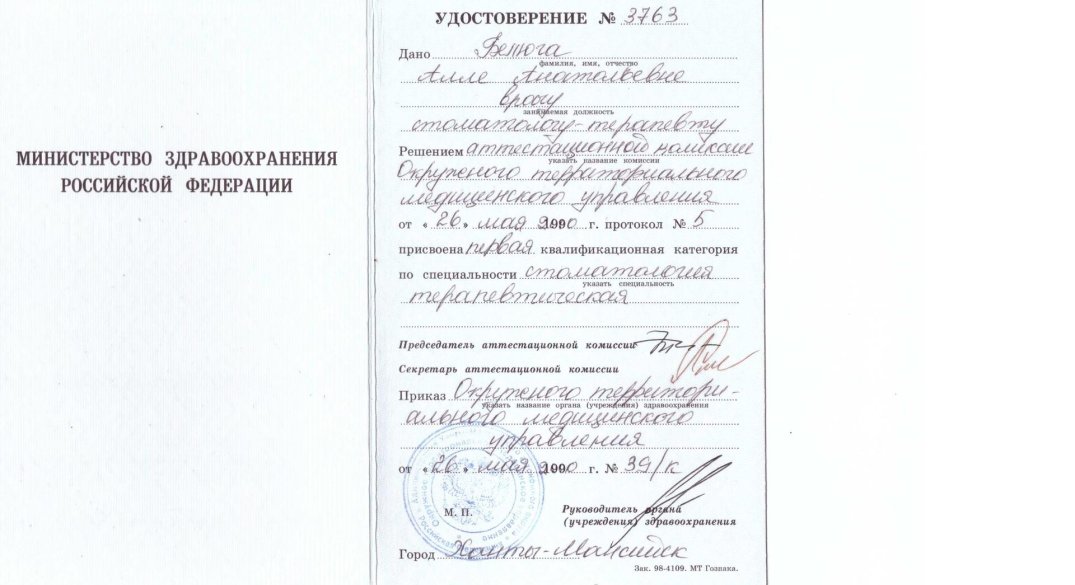 МИНИСТЕРСТВО ЗДРАВООХРАНЕНИЯ
РОССИЙСКОЙ ФЕДЕРАЦИИ
УДОСТОВЕРЕНИЕ № 3763
Дано Бенюга
фамилия, имя, отчество
Алле Анатольевне
врачу
занимаемая должность
стоматологу-терапевту
Решением аттестационной комиссии
указать название комиссии
Окружного территориального
медицинского управления
от «26» мая г. протокол № 5
присвоена первая квалификационная категория
по специальности стоматология
указать специальность
терапевтическая
Председатель аттестационной комиссии
Секретарь аттестационной комиссии
Приказ Окружного территори-
указать название органа (учреждения) здравоохранения
ального медицинского
управления
от «26» мая г. № 39/к
М. П.
Руководитель органа
(учреждения) здравоохранения
Город Ханты-Мансийск
Зак. 98-4109. МТ Гознака.